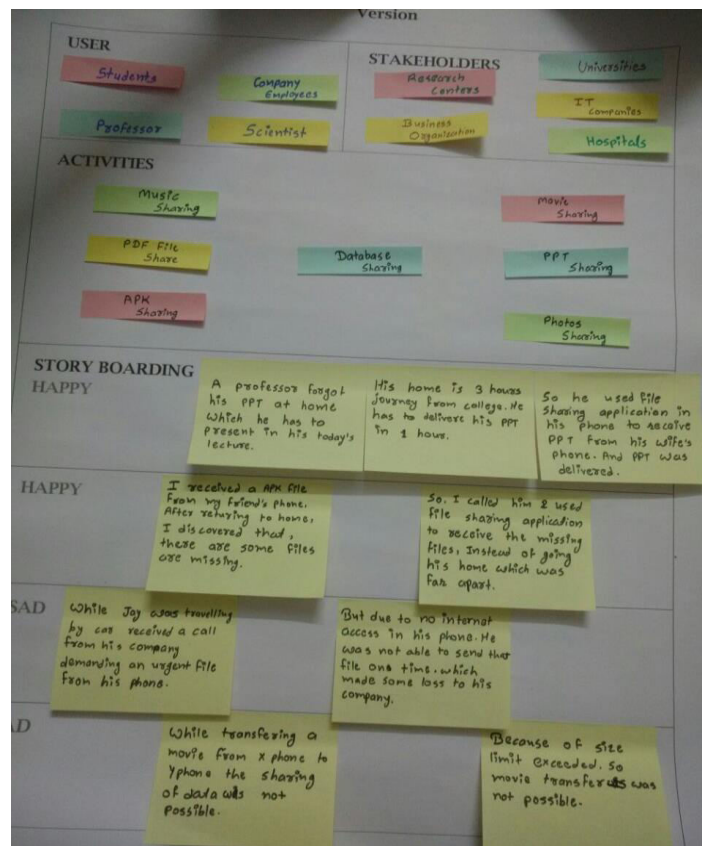 Version
USER
Students
Company
Employees
Professor
Scientist
STAKEHOLDERS
Research
Centers
Universities
IT
Companies
Business
Organization
Hospitals
ACTIVITIES
Music
Sharing
Movie
Sharing
PDF File
Share
Database
Sharing
PPT
Sharing
APK
Sharing
Photos
Sharing
STORY BOARDING
HAPPY
A professor forgot
his PPT at home
which he has to
present in his today's
lecture.
His home is 3 hours
journey from college. He
has to delivere his PPT
in 1 hour.
So he used file
sharing application in
his phone to receive
PPT from his wife's
phone. And PPT was
delivered.
HAPPY
I received a APK file
from my friend's phone.
After returing to home,
I discovered that,
there are some files
are missing.
So, I called him & used
file sharing application
to receive the missing
files, Instead of going
his home which was
far apart.
SAD
While Jay was travelling
by car received a call
from his company
demanding an urgent file
from his phone.
But due to no internet
access in his phone. He
was not able to send that
file one time. which
made some loss to his
company.
AD
While transfering a
movie from x phone to
y phone the sharing
of data was not
possible.
Because of size
limit exceeded. So
movie transfer was
not possible.